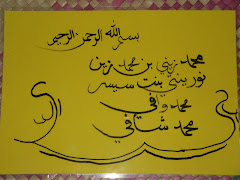 بسم الله الرحمن الرحيم
محمد زيني بن محمد زين
نور بنت
محمد
محمد شافي